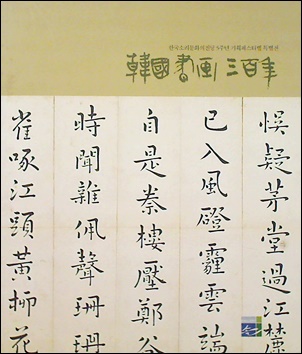 한국소리문화의전당 5주년 기획페스티벌 특별전
韓國書画 三百年
悞疑茅堂過江麓
已入風磴霾雲端
自是秦樓壓鄭谷
時聞雜佩聲珊珊
雀啄江頭黃柳花